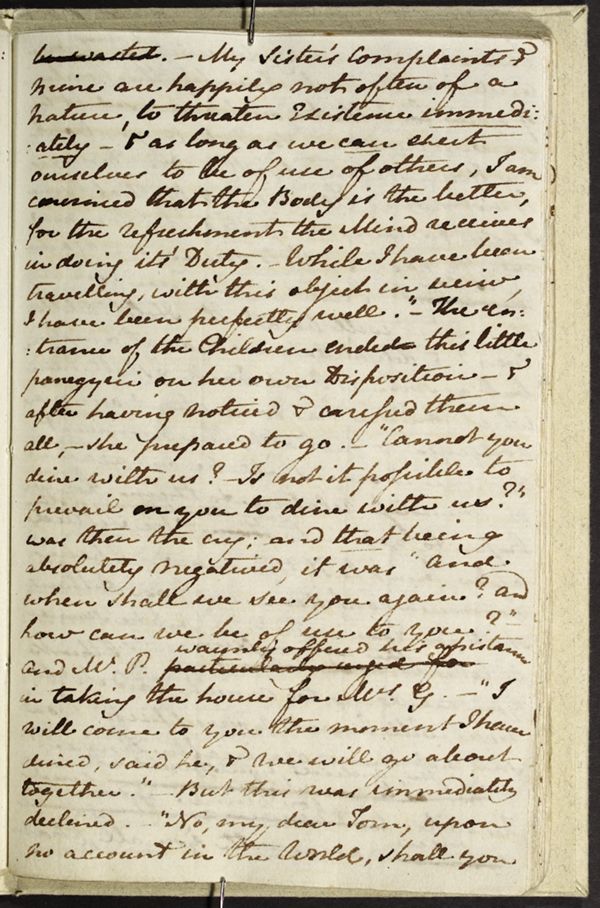 be wasted. – My Sister's Complaints &
mine are happily not often of a
nature, to threaten Existence immedi:
:ately – & as long as we can exert
ourselves to be of use of others, I am
convinced that the Body is the better,
for the refreshment the Mind receives
in doing its' Duty. – While I have been
travelling, with this object in veiw,
I have been perfectly well." – The en:
:trance of the Children ended this little
panegyric on her own Disposition – &
after having noticed & caressed them
all, – she prepared to go. – "Cannot you
dine with us? – Is not it possible to
prevail on you to dine with us?"
was then the cry; and that being
absolutely negatived, it was "And
when shall we see you again? and
how can we be of use to you?" –
warmly offered his assistance
and Mr. P. particularly urged for
in taking the house for Mrs. G. – "I
will come to you the moment I have
dined, said he, & we will go about
together." – But this was immediately
declined. – "No, my dear Tom, upon
no account in the World, shall you